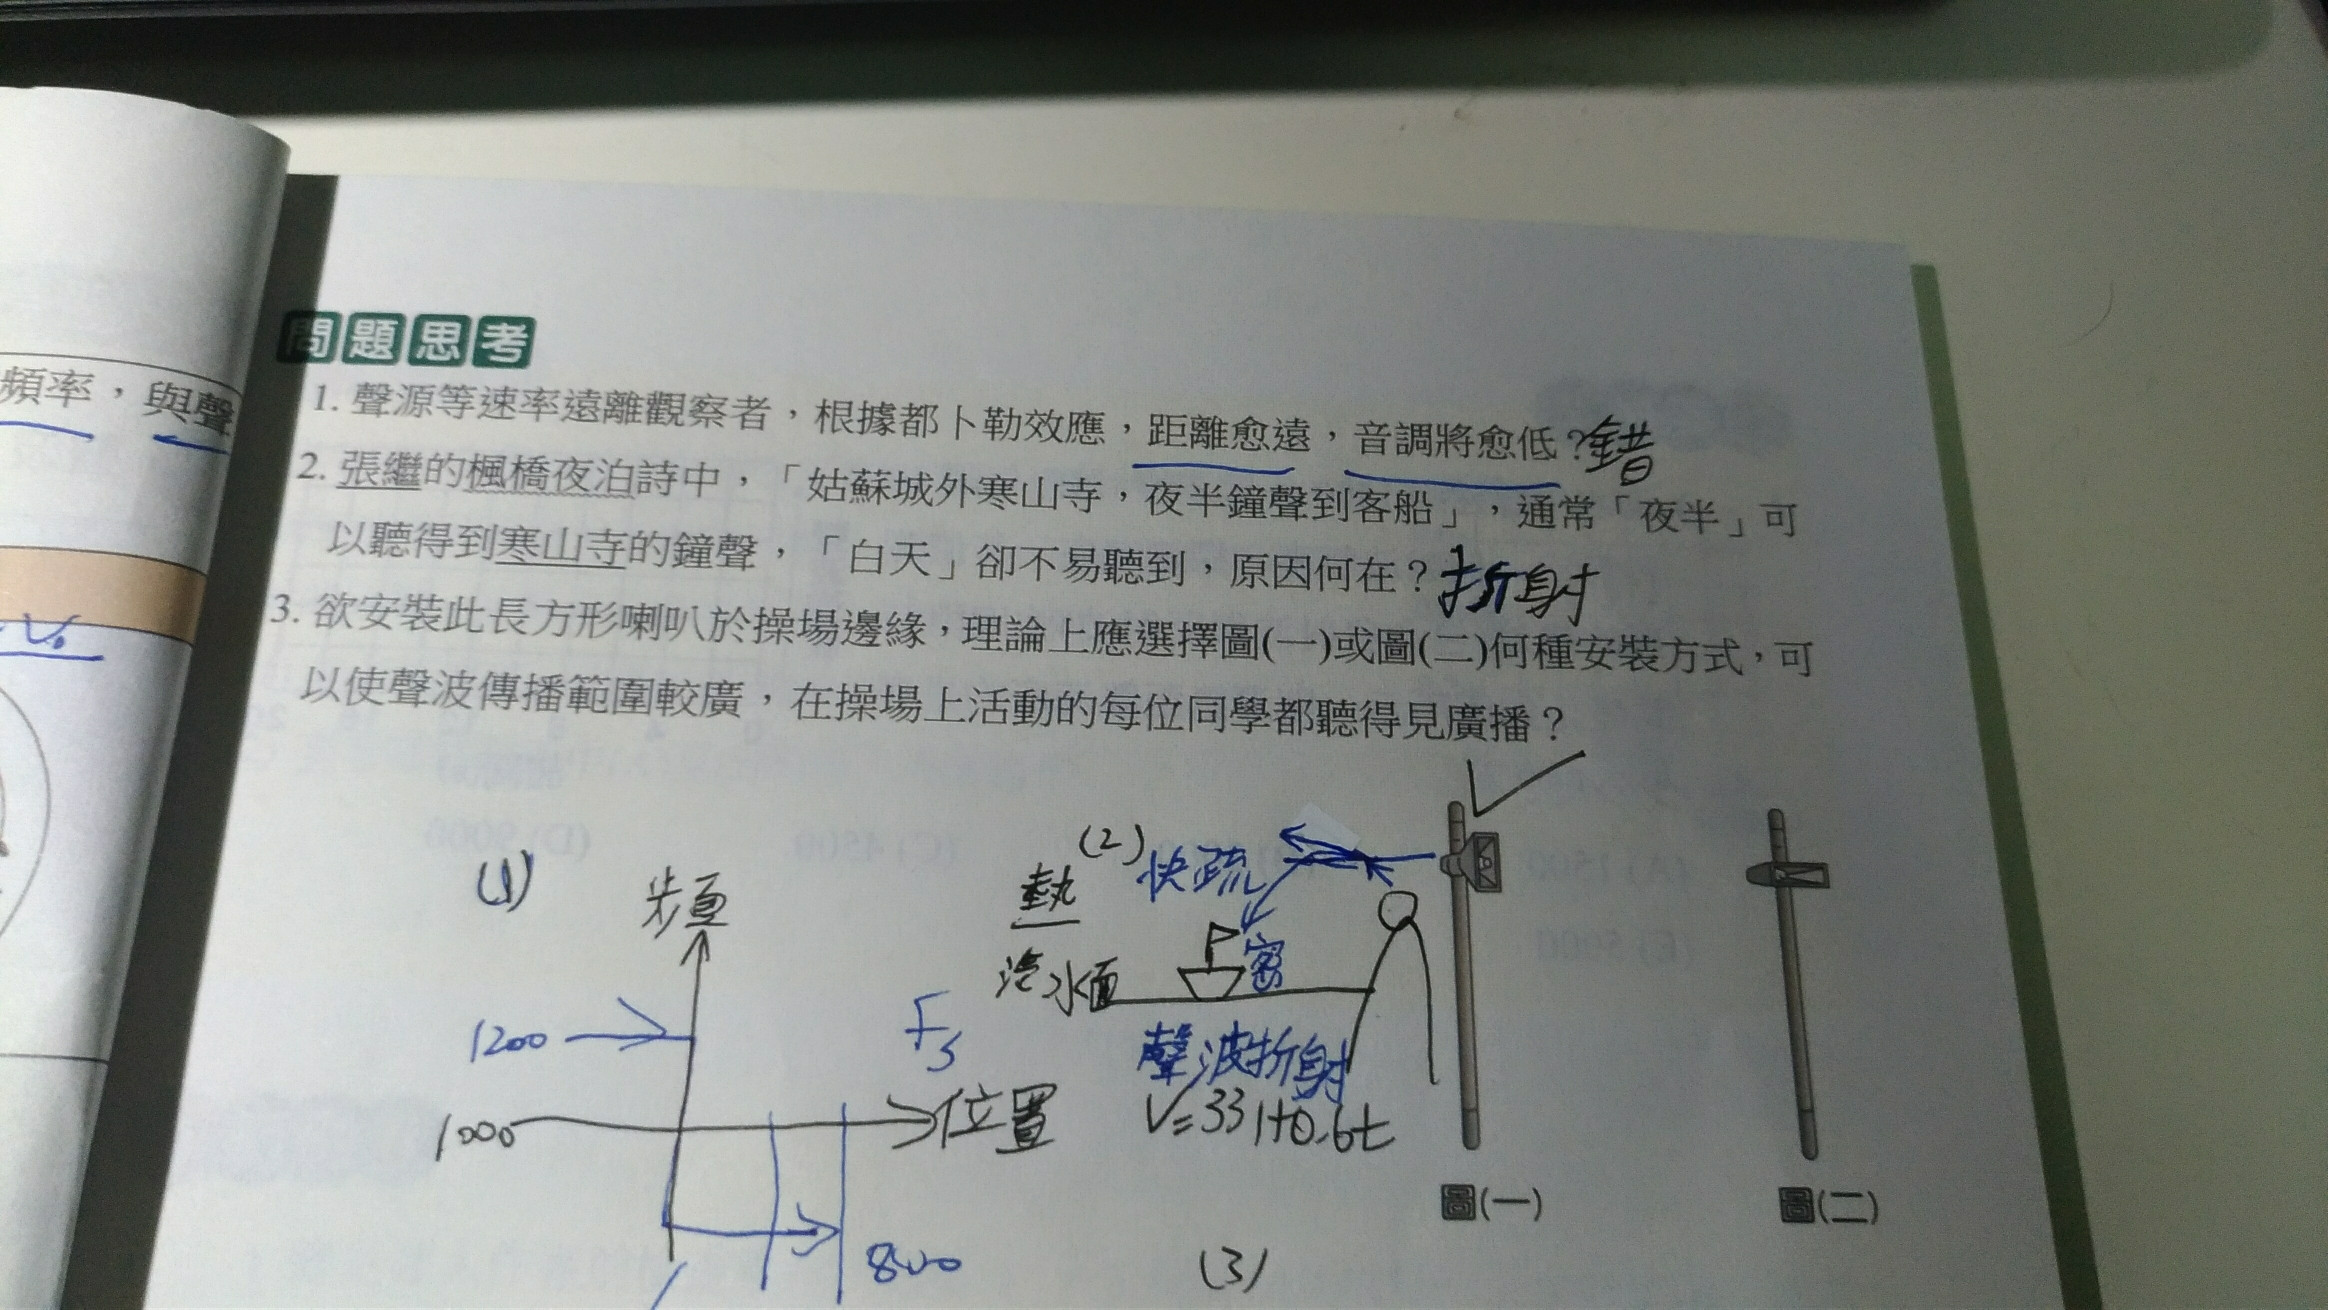 問題思考
頻率，與聲
1. 聲源等速率遠離觀察者，根據都卜勒效應，距離愈遠，音調將愈低？錯
2. 張繼的楓橋夜泊詩中，「姑蘇城外寒山寺，夜半鐘聲到客船」，通常「夜半」可
以聽得到寒山寺的鐘聲，「白天」卻不易聽到，原因何在？折射
3. 欲安裝此長方形喇叭於操場邊緣，理論上應選擇圖(一)或圖(二)何種安裝方式，可
以使聲波傳播範圍較廣，在操場上活動的每位同學都聽得見廣播？
V₀
(1)
頻
1200
1000
位置
800
(2)
熱
快疏
密
冷水面
聲波折射
V=331+0.6t
圖(一)
圖(二)
(3)